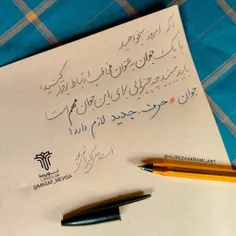 اگر امروز میخواهید
با یک جوان بعنوان مخاطب ارتباط برقرار کنید،
باید بفهمید چه چیزهایی برای این جوان مهم است
جوان حرف جدید لازم دارد!
@ALIREZAEKRAMI.ART
@MASAF_NEVISA